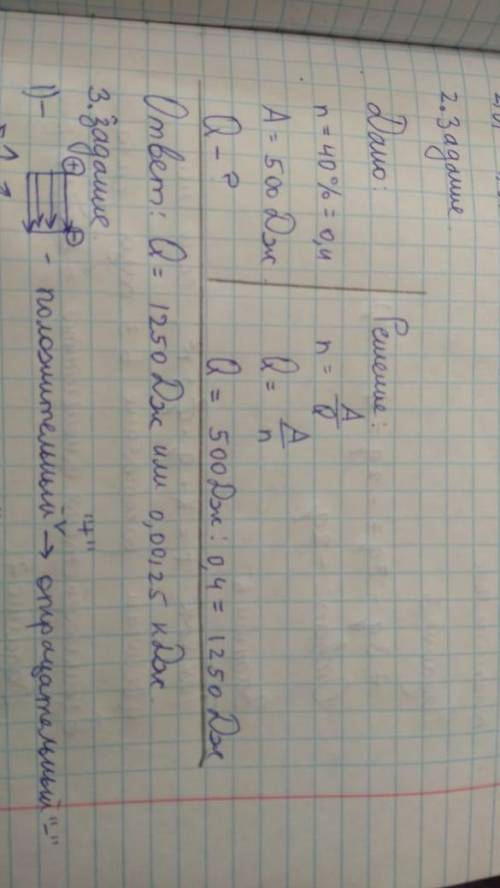 2. Задание
Дано:
n = 40% = 0,4
A = 500 Дж
Q - ?
Решение:
n = A/Q
Q = A/n
Q = 500 Дж : 0,4 = 1250 Дж
Ответ: Q = 1250 Дж или 0,00125 кДж.
3. Задание.
1) -
+ -
- положительный "+" → отрицательный "-"